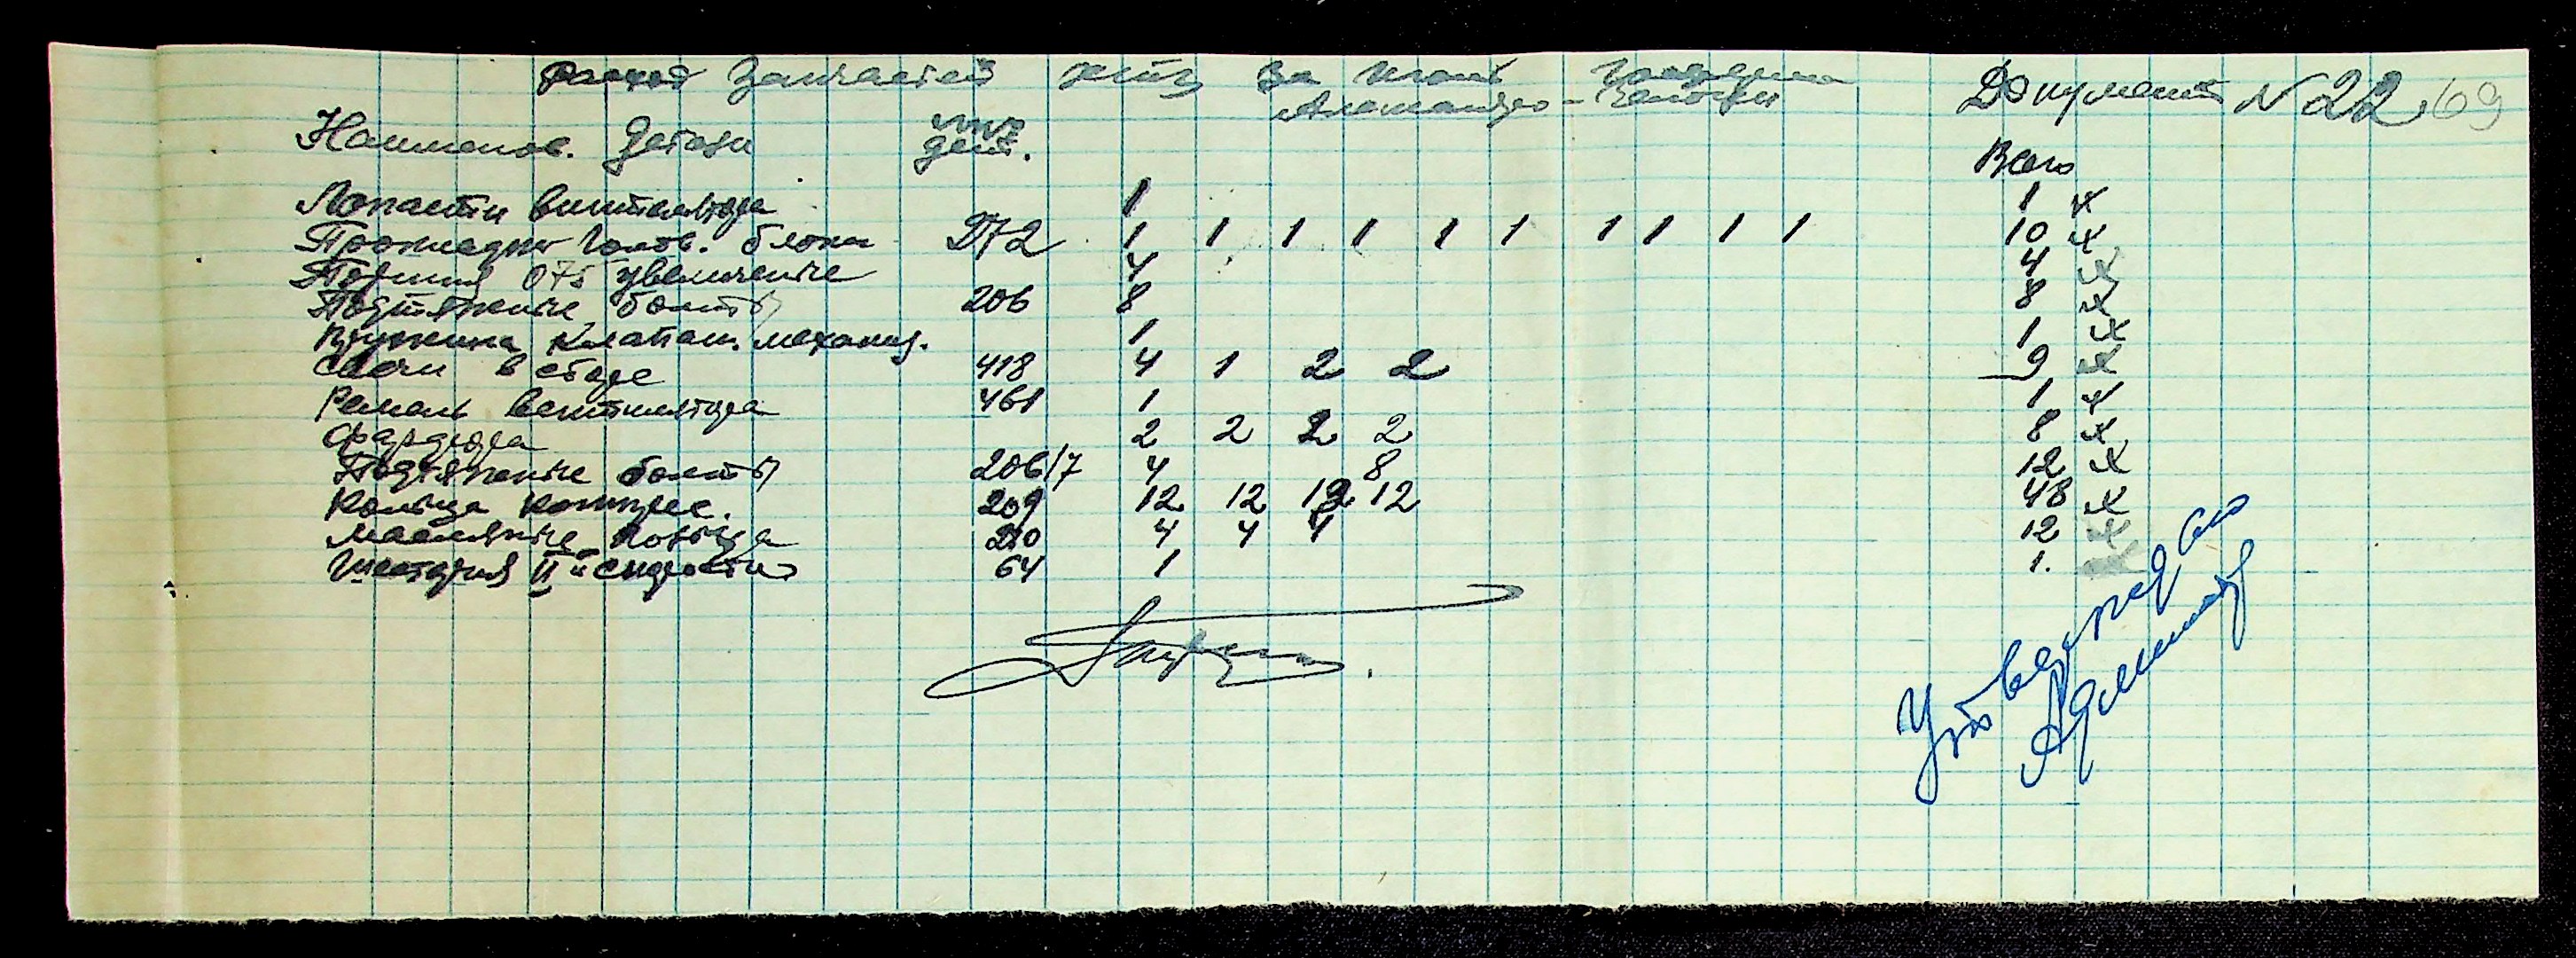 Расход Запчастей за Июль Документ N 22 69
Наименов. Детали дет. Всего
Лопасти вентилятора 1 1 х
Прокладки голов. блока 272 1 1 1 1 1 1 1 1 1 1 10 х
Поршня 075 увеличение 4 4 х
Подшипение болты 206 8 8 х
Пружина клапан. механиз. 1 1 х
Свечи в сборе 418 4 1 2 2 9 х
Ремень вентилятора 461 1 1 х
2 2 2 2 8 х
Подшипение болты 206/7 4 8 12 х
Кольца компрес. 209 12 12 12 12 48 х
Масляные кольца 210 4 4 4 12 х
Шестерня II й скорости 64 1 1. х
Утверждаю